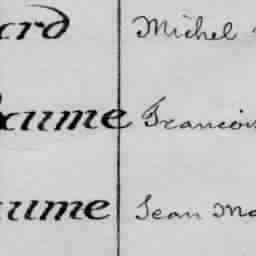 ard Michel
aume Francois
aume Jean Ma